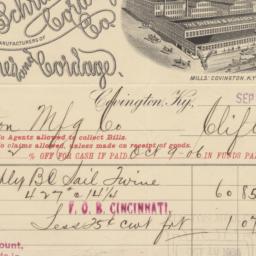 Cord
Co.
MANUFACTURERS OF
and Cordage.
MILLS: COVINGTON, K.Y.
Covington, Ky.,
SEP
Mfg Co
Clif
No Agents allowed to collect Bills.
No claims allowed, unless made on receipt of goods.
2 % OFF FOR CASH IF PAID Oct 9-06 IN FUNDS PA
B C Sail Twine
427 @ 14¼ 60 85
F. O. B. CINCINNATI.
Less 25¢ cwt frt 1 07